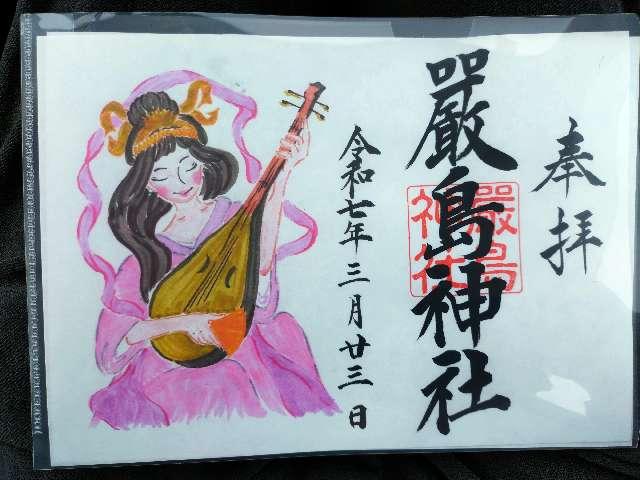 奉拝
嚴島神社
嚴島神社
令和七年三月廿三日